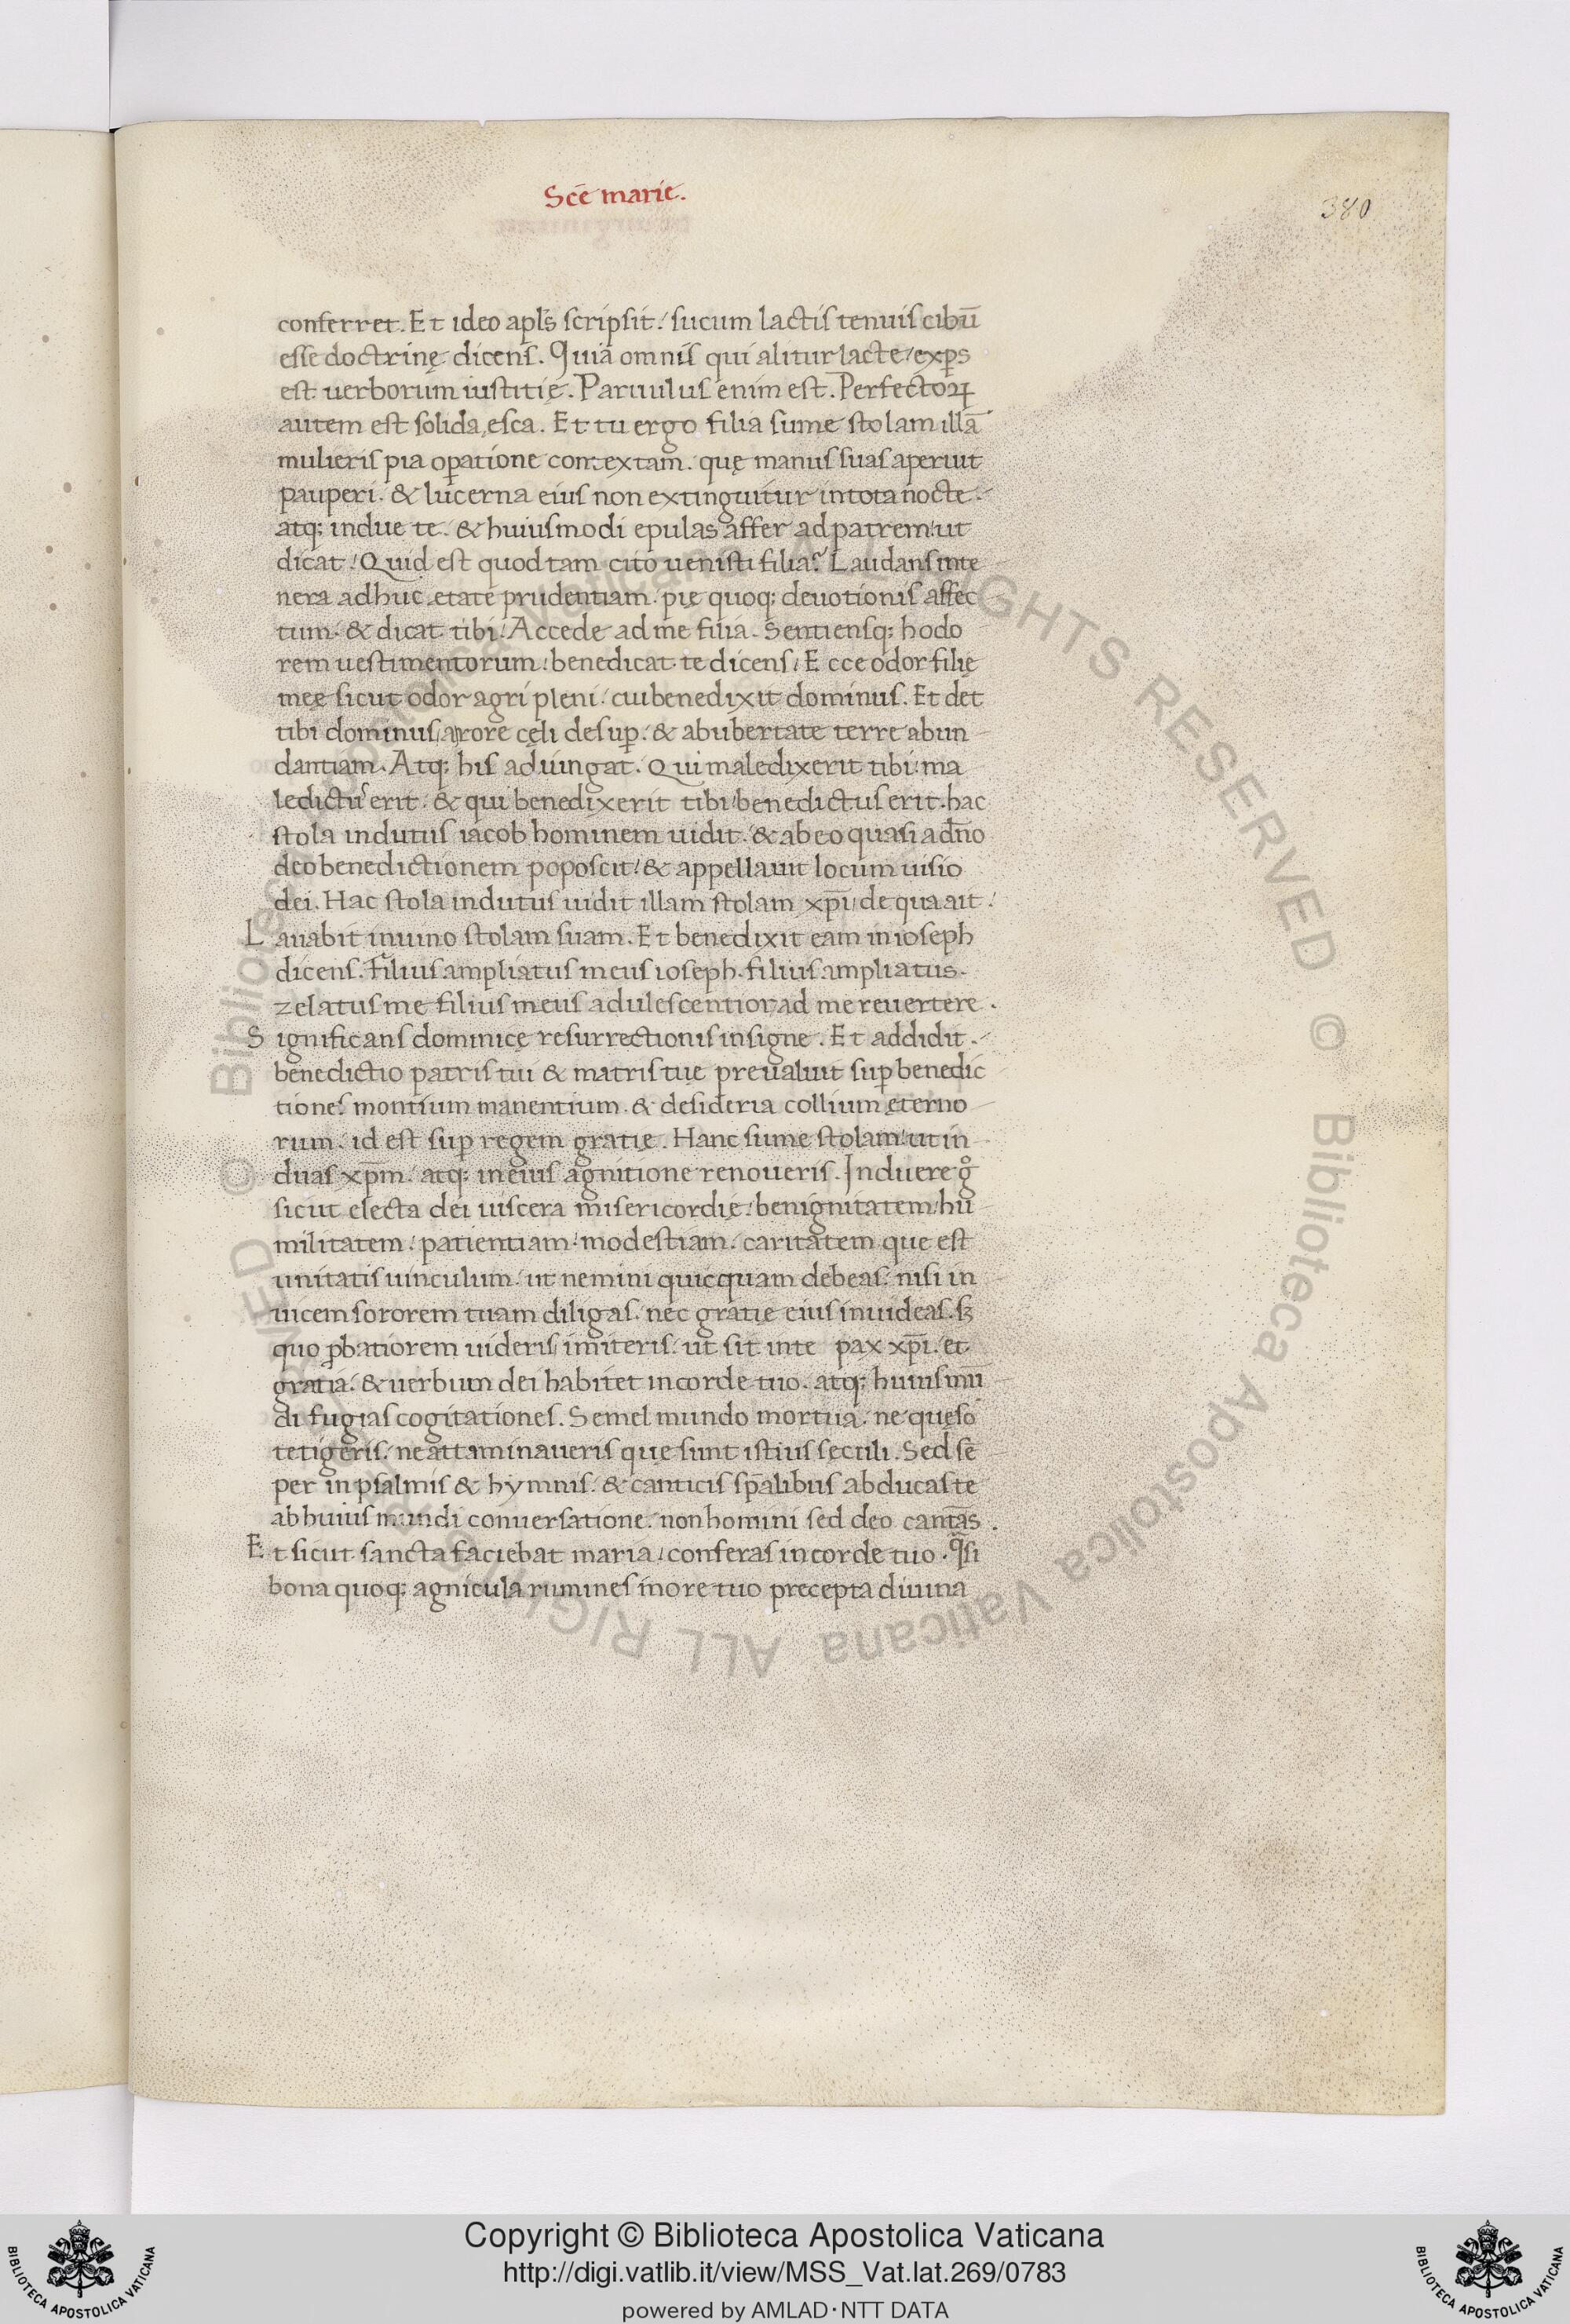 Scē marie.
380
conferret. Et ideo apl's scripsit. sucum lactis tenuis cibū
esse doctrinę dicens. Quia omnis qui alitur lacte expers
est uerborum iustitię. Paruulus enim est. Perfectoꝝ
autem est solida esca. Et tu ergo filia sume stolam illā
mulieris pia oꝑatione contextam. quę manus suas aperuit
pauperi. & lucerna eius non extinguitur in tota nocte.
atq; indue te. & huiusmodi epulas affer ad patrem. ut
dicat. Quid est quod tam cito uenisti filia? Laudans inte
nera adhuc etate prudentiam. pię quoq; deuotionis affec
tum. & dicat tibi. Accede ad me filia. Sentiensq; hodo
rem uestimentorum. benedicat te dicens. Ecce odor filię
meę sicut odor agri pleni. cui benedixit dominus. Et det
tibi dominus a rore cęli desuꝑ. & ab ubertate terre abun
dantiam. Atq; his adiungat. Qui maledixerit tibi. ma
ledictus erit. & qui benedixerit tibi. benedictus erit. hac
stola indutus iacob hominem uidit. & ab eo quasi a dn̄o
deo benedictionem poposcit. & appellauit locum uisio
dei. Hac stola indutus uidit illam stolam xp̄i. de qua ait.
Lauabit in uino stolam suam. Et benedixit eam in ioseph
dicens. Filius ampliatus meus ioseph. filius ampliatus.
zelatus me filius meus adulescentior, ad me reuertere.
Significans dominicę resurrectionis insigne. Et addidit.
benedictio patris tui & matris tuę preualuit suꝑ benedic
tiones montium manentium. & desideria collium ęterno
rum. id est suꝑ regem gratię. Hanc sume stolam. ut in
duas xp̄m. atq; in eius agnitione renoueris. Induere gͦ
sicut electa dei uiscera misericordię. benignitatem. hu
militatem. patientiam. modestiam. caritatem que est
unitatis uinculum. ut nemini quicquam debeas. nisi in
uicem sororem tuam diligas. nec gratię eius inuideas. sꝫ
quo ꝓbatiorem uideris, imiteris. ut sit in te pax xp̄i. et
gratia. & uerbum dei habitet in corde tuo. atq; huiusmū
di fugias cogitationes. Semel mundo mortua. ne quęso
tetigeris. ne attaminaueris quę sunt istius sęculi. Sed sē
per in psalmis & hymnis. & canticis sp̄alibus abducas te
ab huius mundi conuersatione. non homini sed deo cantās.
Et sicut sancta faciebat maria. conferas in corde tuo. Qͣsi
bona quoq; agnicula rumines in ore tuo precepta diuina
Copyright © Biblioteca Apostolica Vaticana
http://digi.vatlib.it/view/MSS_Vat.lat.269/0783
powered by AMLAD·NTT DATA
BIBLIOTECA APOSTOLICA VATICANA
BIBLIOTECA APOSTOLICA VATICANA
© Biblioteca Apostolica Vaticana ALL RIGHTS RESERVED © Biblioteca Apostolica Vaticana ALL RIGHTS RESERVED